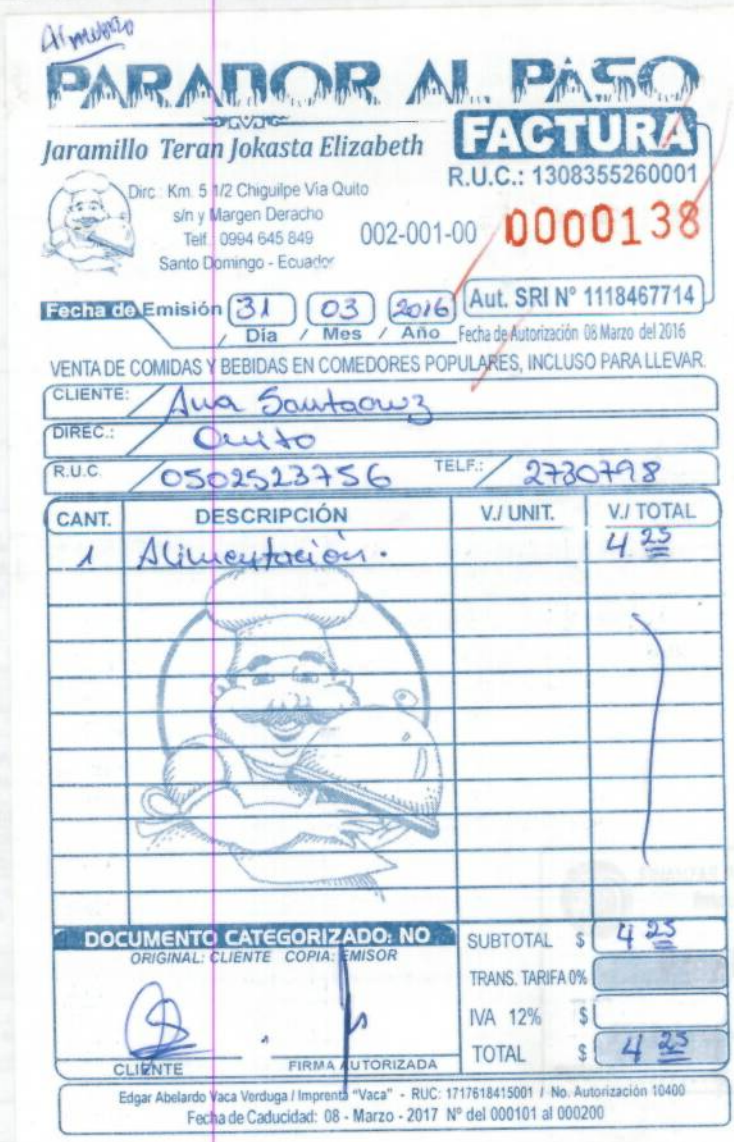 Almuerzo
PARADOR AL PASO
Jaramillo Teran Jokasta Elizabeth
FACTURA
R.U.C.: 1308355260001
Dirc : Km. 5 1/2 Chiguilpe Vía Quito
s/n y Margen Deracho
Telf.: 0994 645 849
Santo Domingo - Ecuador
002-001-00 0000138
Fecha de Emisión 31 03 2016
Día / Mes / Año
Aut. SRI Nº 1118467714
Fecha de Autorización 08 Marzo del 2016
VENTA DE COMIDAS Y BEBIDAS EN COMEDORES POPULARES, INCLUSO PARA LLEVAR.
CLIENTE: Ana Santacruz
DIREC.: Quito
R.U.C. 0502523756 TELF.: 2730798
CANT. DESCRIPCIÓN V./ UNIT. V./ TOTAL
1 Alimentación. 4 25
DOCUMENTO CATEGORIZADO: NO
ORIGINAL: CLIENTE COPIA: EMISOR
SUBTOTAL $ 4 25
TRANS. TARIFA 0%
IVA 12% $
TOTAL $ 4 25
CLIENTE FIRMA AUTORIZADA
Edgar Abelardo Vaca Verduga / Imprenta "Vaca" - RUC: 1717618415001 / No. Autorización 10400
Fecha de Caducidad: 08 - Marzo - 2017 Nº del 000101 al 000200